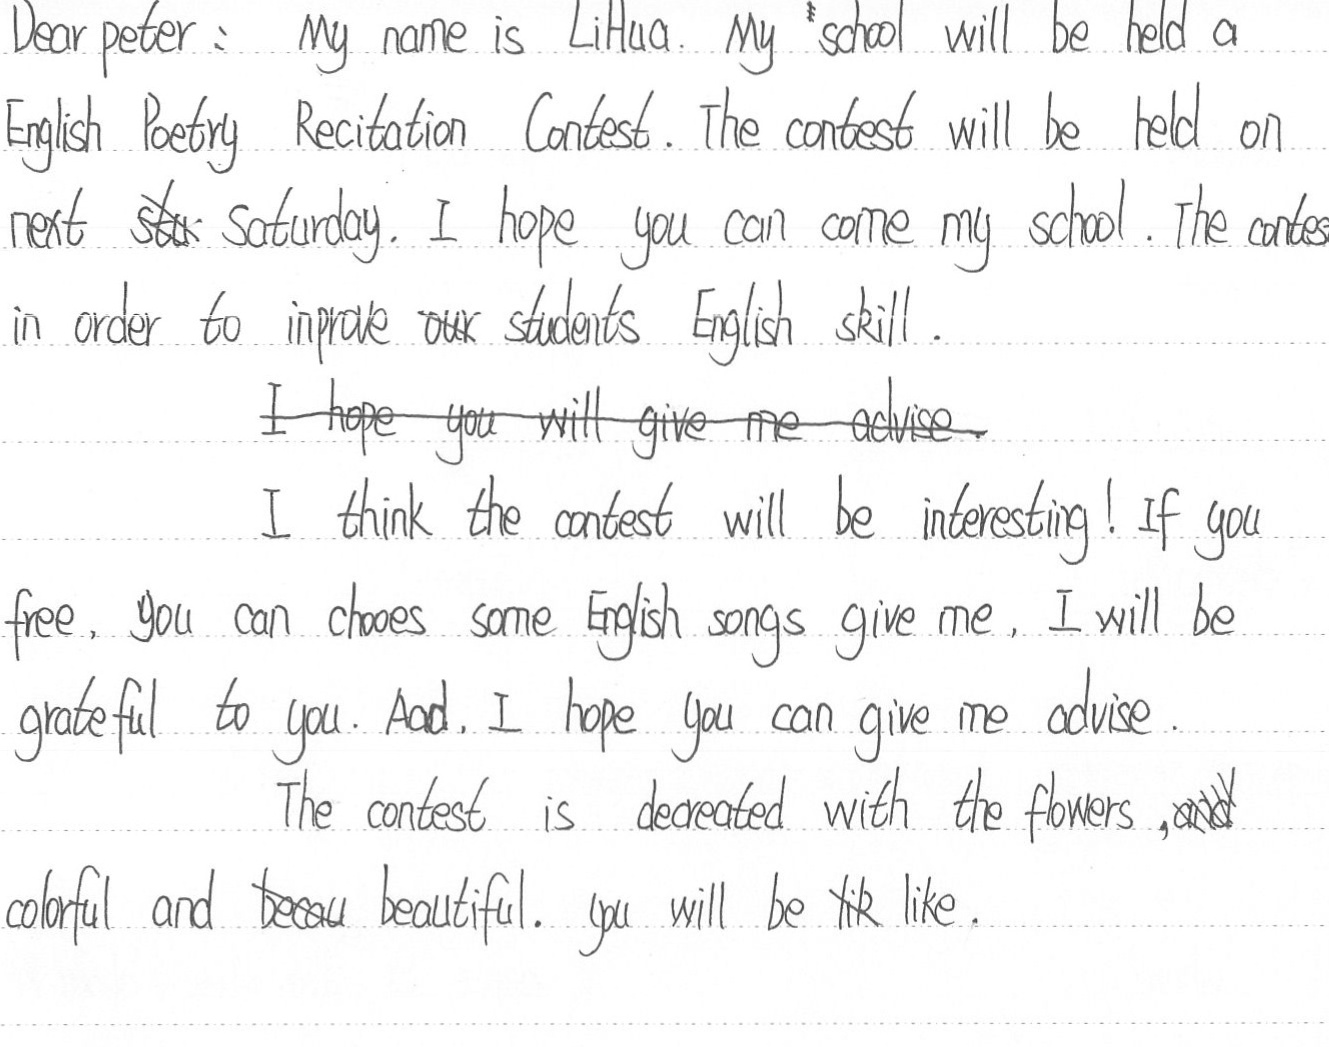 Dear peter: My name is LiHua. My school will be held a
English Poetry Recitation Contest. The contest will be held on
next Saturday. I hope you can come my school. The contes
in order to inprove students English skill.
I hope you will give me advise.
I think the contest will be interesting! If you
free, you can chooes some English songs give me, I will be
grateful to you. And, I hope you can give me advise.
The contest is decreated with the flowers,
colorful and beautiful. you will be like.